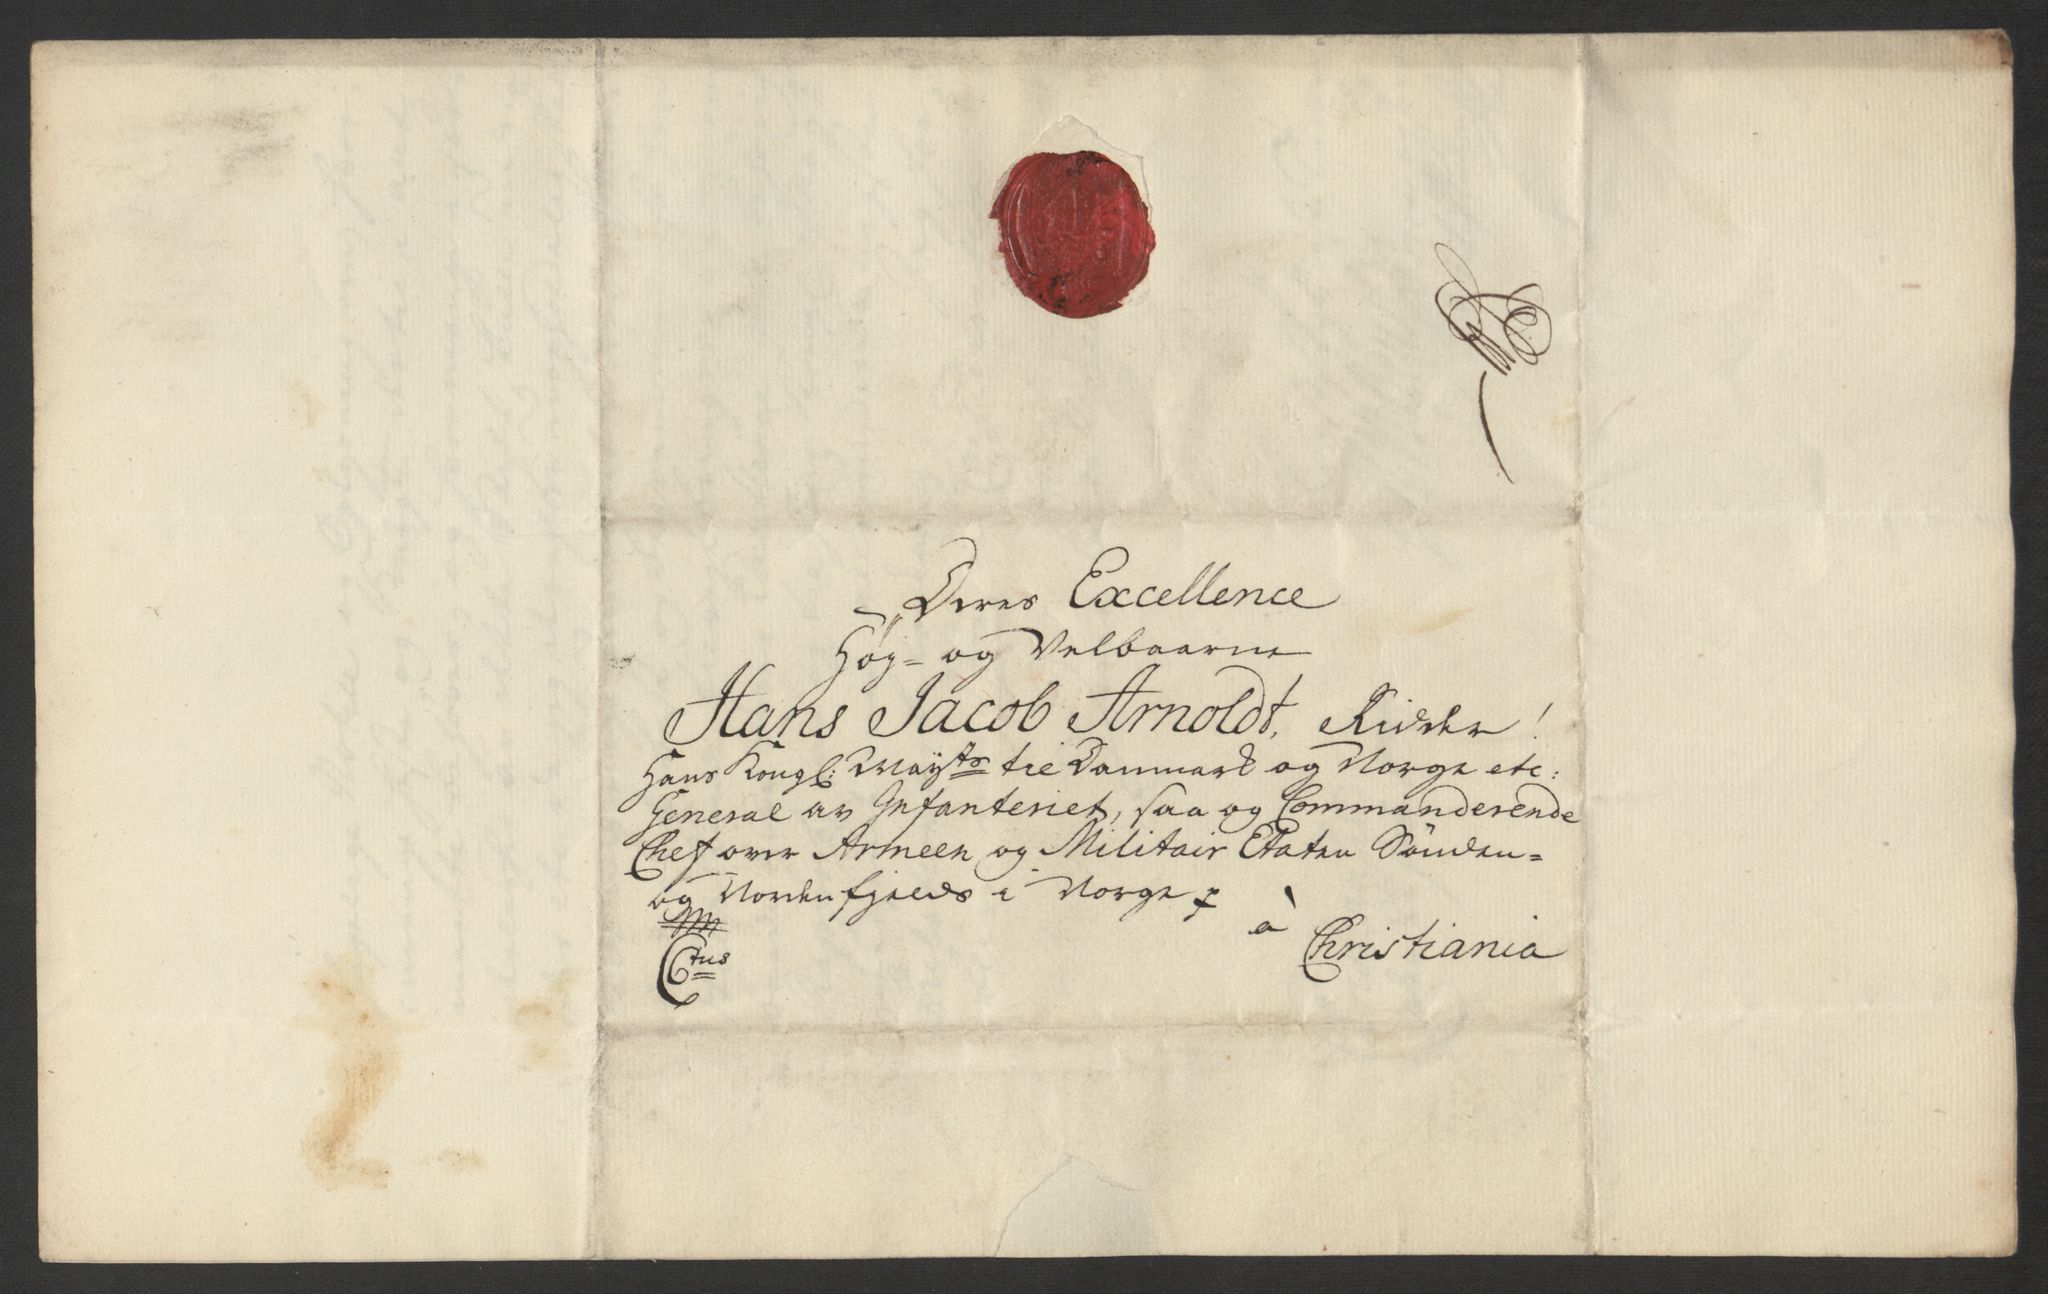 Deres Excellence
Høy- og Velbaarne
Hans Jacob Arnoldt, Ridder!
Hans Kongl: Mayts til Danmark og Norge etc:
General av Infanteriet, saa og Commanderende
Chef over Armeen og Militair Etaten Sönden-
og Nordenfjelds i Norge
à
Christiania
Ctus